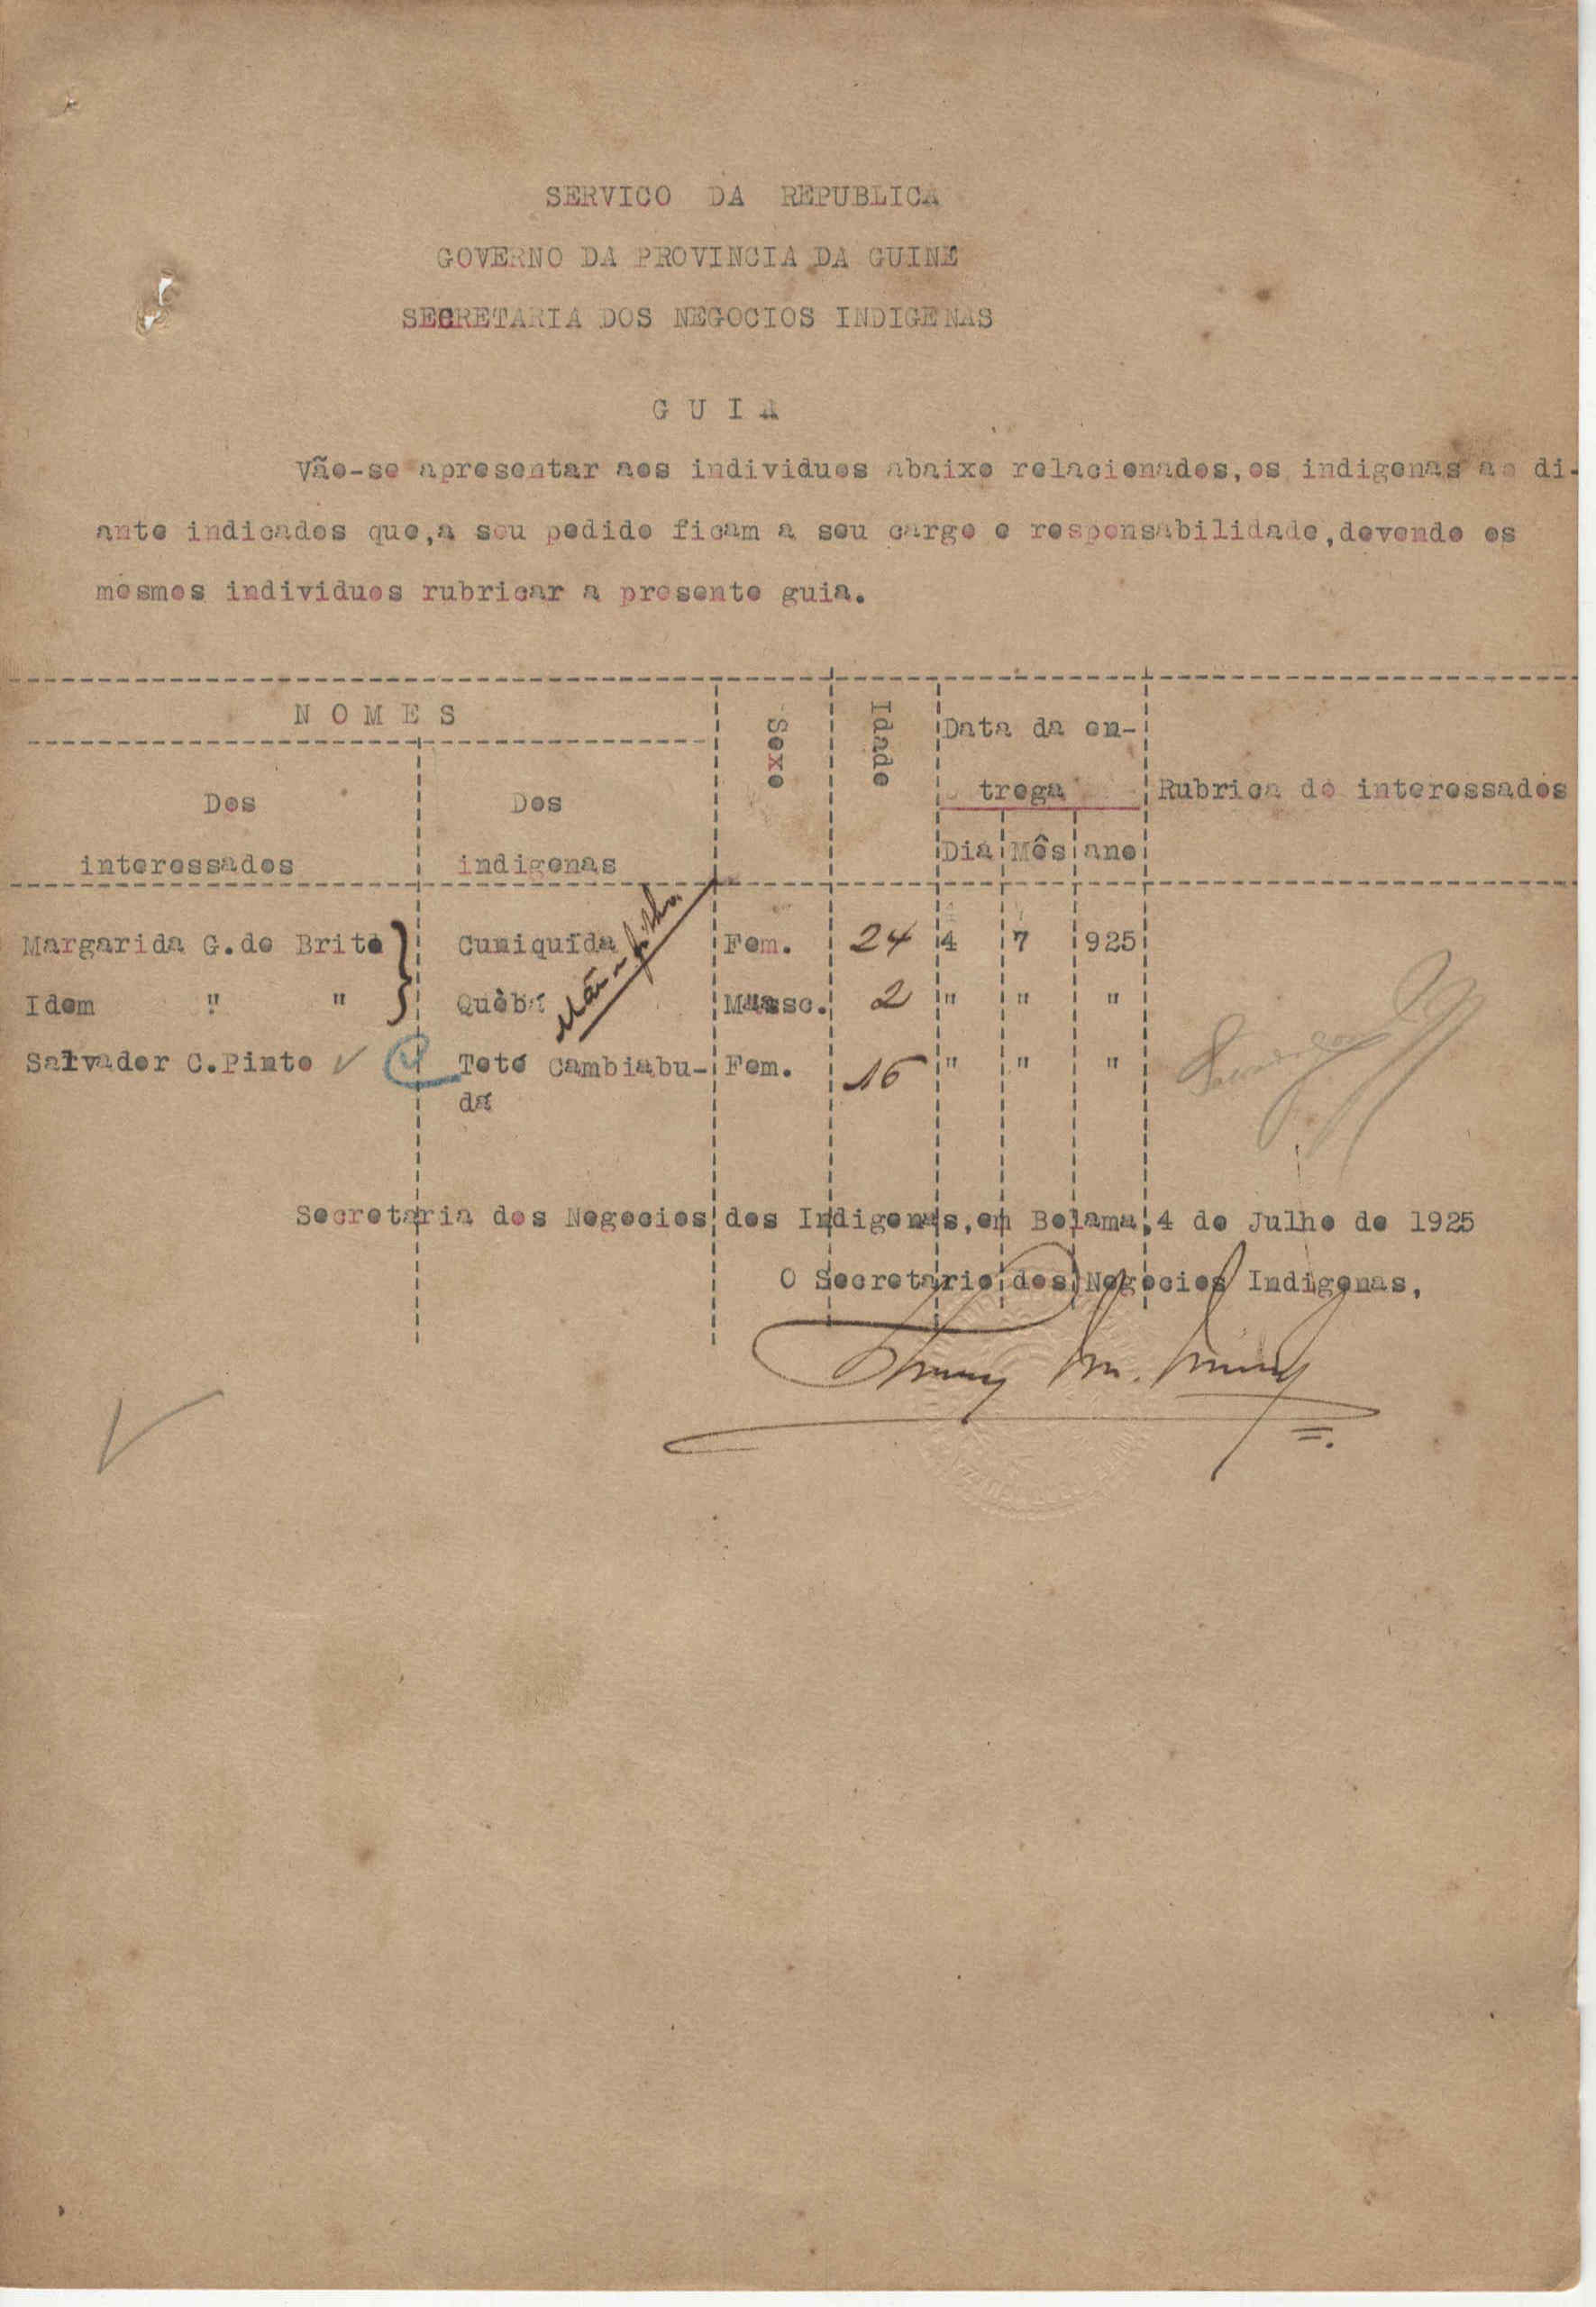 SERVICO DA REPUBLICA
GOVERNO DA PROVINCIA DA GUINE
SECRETARIA DOS NEGOCIOS INDIGENAS
G U I A
Vão-se apresentar aos individuos abaixo relacionados,os indigenas ao di-
ante indicados que,a seu pedido ficam a seu cargo e responsabilidade,devendo os
mesmos individuos rubricar a presente guia.
N O M E S
Sexo
Idade
Data da en-
trega
Rubrica do interessados
Dos
interessados
Dos
indigenas
Dia Mês ano
Margarida G.de Brito Cuniquída Fem. 24 4 7 925
Mãe e filho
Idem " " Quèbá Masc. 2 " " "
Salvador C.Pinto Teté Cambiabu- Fem. 16 " " "
dá
Secretaria dos Negocios dos Indigenas,em Bolama,4 de Julho de 1925
O Secretario dos Negocios Indigenas,